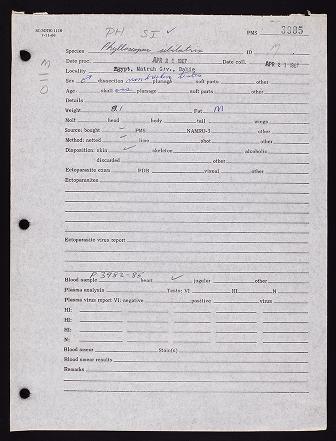 PH SI ✓ PMS 3985
Species Phylloscopus sibilatrix ID
Date proc. APR 21 1967 Date coll. APR 21 1967
Locality Egypt, Matruh Gov., Bahig
Sex ♂ dissection plumage soft parts other
Age skull plumage soft parts other
Details
Weight Fat M
Molt head body tail wings
Source: bought ✓ PMS NAMRU-3 other
Method: netted ✓ lime shot other
Disposition: skin ✓ skeleton alcoholic
discarded other
Ectoparasite exam PDB visual other
Ectoparasites
Ectoparasite virus report
P-3982-85
Blood sample heart ✓ jugular other
Plasma analysis Tests: VI HI N
Plasma virus report VI: negative positive virus
HI:
HI:
HI:
N:
Blood smear Stain(s)
Blood smear results
Remarks
M
=
O